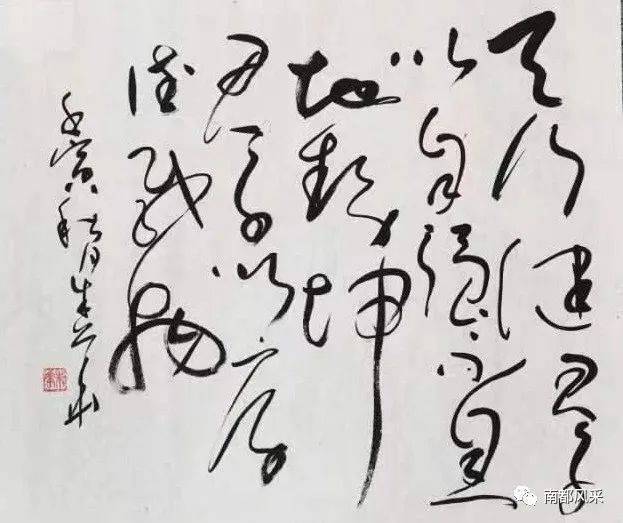 天行健君子
以自强不息
地势坤
君子以厚
德载物
壬寅秋月
南都风采